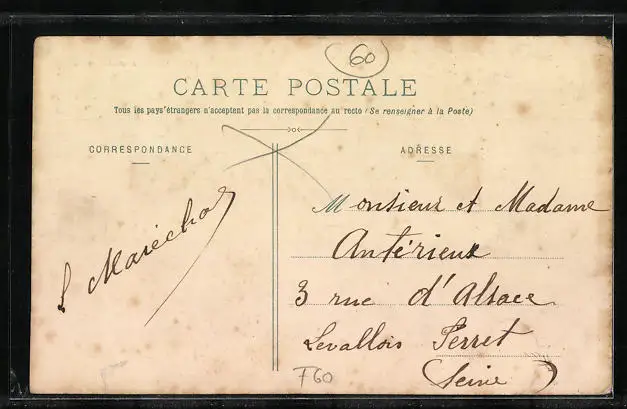 60
CARTE POSTALE
Tous les pays étrangers n'acceptent pas la correspondance au recto (Se renseigner à la Poste)
CORRESPONDANCE
L Maréchal
ADRESSE
Monsieur et Madame
Antérieux
3 rue d'Alsace
Levallois Perret
(Seine)
F60